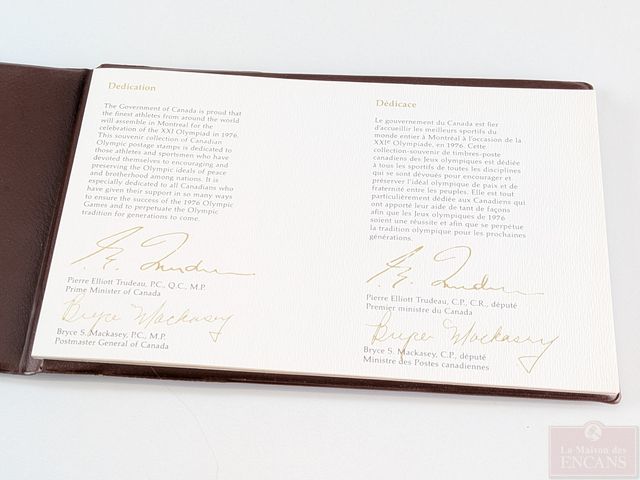 Dedication
The Government of Canada is proud that
the finest athletes from around the world
will assemble in Montreal for the
celebration of the XXI Olympiad in 1976.
This souvenir collection of Canadian
Olympic postage stamps is dedicated to
those athletes and sportsmen who have
devoted themselves to encouraging and
preserving the Olympic ideals of peace
and brotherhood among nations. It is
especially dedicated to all Canadians who
have given their support in so many ways
to ensure the success of the 1976 Olympic
Games and to perpetuate the Olympic
tradition for generations to come.
P. E. Trudeau
Pierre Elliott Trudeau, P.C., Q.C., M.P.
Prime Minister of Canada
Bryce Mackasey
Bryce S. Mackasey, P.C., M.P.
Postmaster General of Canada
Dédicace
Le gouvernement du Canada est fier
d'accueillir les meilleurs sportifs du
monde entier à Montréal à l'occasion de la
XXIe Olympiade, en 1976. Cette
collection-souvenir de timbres-poste
canadiens des Jeux olympiques est dédiée
à tous les sportifs de toutes les disciplines
qui se sont dévoués pour encourager et
préserver l'idéal olympique de paix et de
fraternité entre les peuples. Elle est tout
particulièrement dédiée aux Canadiens qui
ont apporté leur aide de tant de façons
afin que les Jeux olympiques de 1976
soient une réussite et afin que se perpétue
la tradition olympique pour les prochaines
générations.
P. E. Trudeau
Pierre Elliott Trudeau, C.P., C.R., député
Premier ministre du Canada
Bryce Mackasey
Bryce S. Mackasey, C.P., député
Ministre des Postes canadiennes
La Maison des
ENCANS